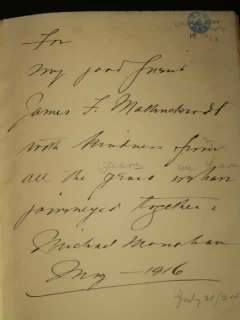 For
my good friend
James F.
with kindness from
years we have
all the years we have
journeyed together &
Michael Monahan
May — 1916
July 21/